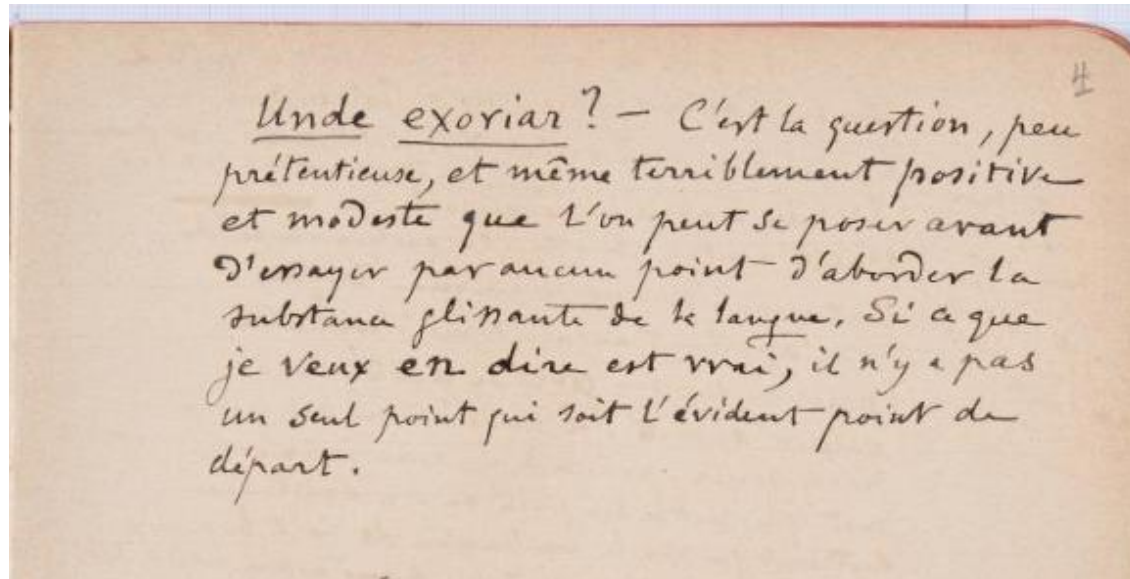 4
Unde exoriar ? — C'est la question, peu
prétentieuse, et même terriblement positive
et modeste que l'on peut se poser avant
d'essayer par aucun point d'aborder la
substance glissante de la langue. Si ce que
je veux en dire est vrai, il n'y a pas
un seul point qui soit l'évident point de
départ.